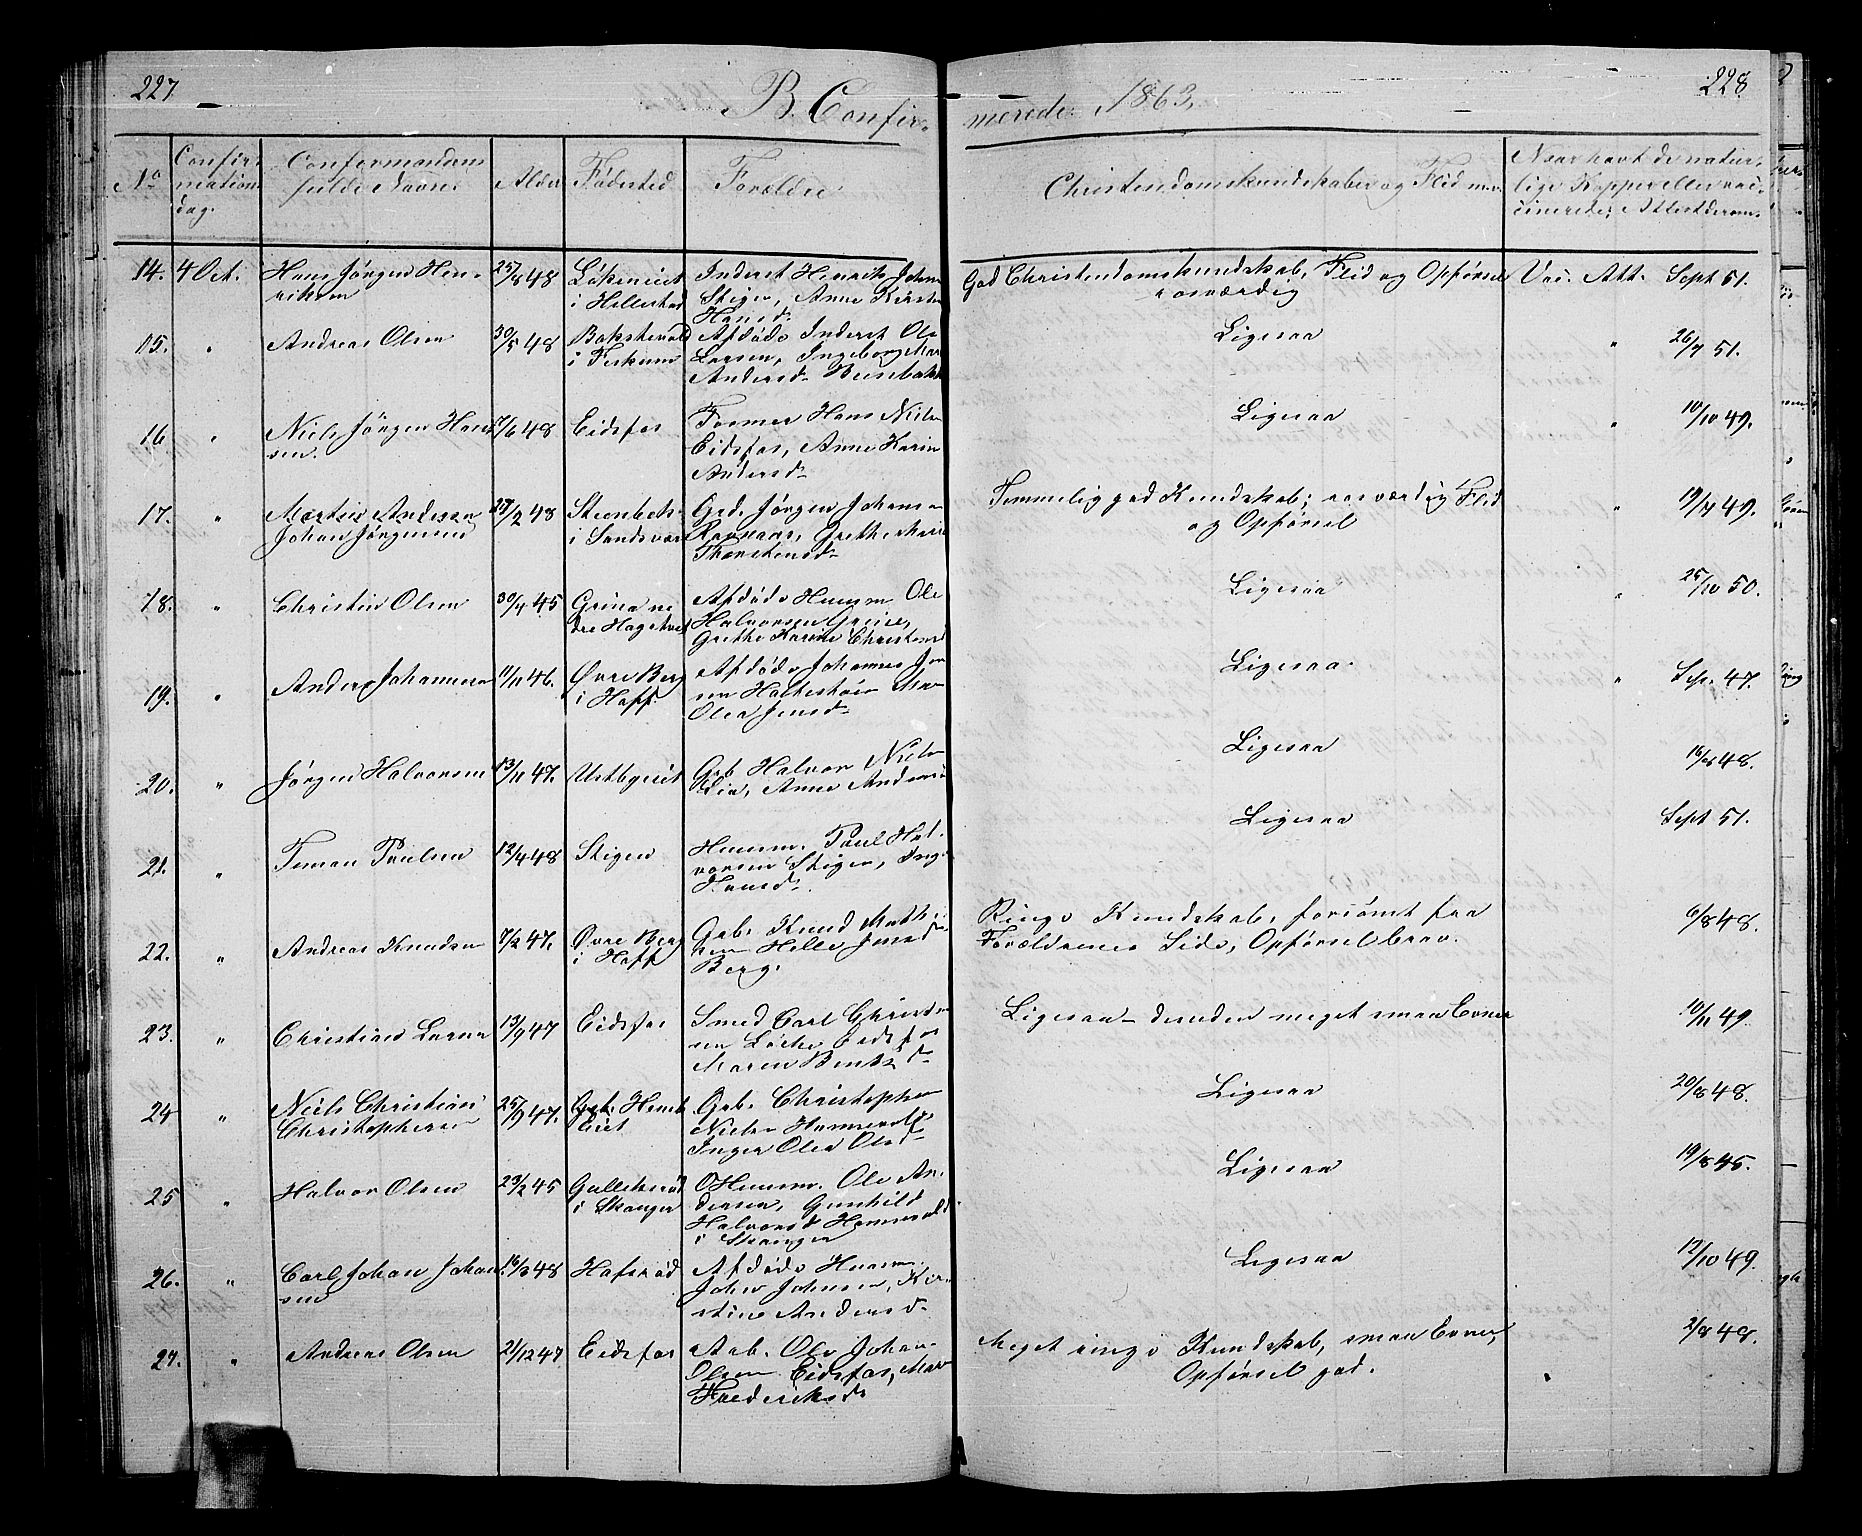 227
B. Confir-
merede 1863.
228
No
Confir-
mations
dag.
Confirmandens
fulde Navne
Alder
Fødested
Forældre
Christendomskundskaber og Flid m.v.
Naar havt de natur-
lige Kopper eller vac-
cinerede; Attest derom.
14. 4 Oct. Hans Jørgen Hen-
riksen
25/8 48
i Hellestad
Inderst Henrik Johan
Stigen, Anne Kirstin
Hansd.
God Christendomskundskab, Flid og Opførsel
rosværdig
Vac. Att. Sept 51.
15. " Andreas Olsen 30/5 48
i Fiskum
Afdøde Inderst Ole
Larsen, Ingeborg Mar
Andersd.
Ligesaa
" 26/7 51.
16 " Niels Jørgen Han
sen.
17/6 48 Eidsfos
Former Hans Niels
Eidsfos, Anne Karin
Andersd.
Ligesaa
" 10/10 49.
17. " Martin Andersen
Johan Jørgensen
27/2 48
i Sandsvær
Grd. Jørgen Johans
Grethe Marie
Thorstensd.
Temmelig god Kundskab; rosværdig Flid
og Opførsel
" 19/7 49.
18. " Christin Olsen 30/4 45
Afdøde Huusm. Ole
Halvorsen
Grethe Karine Christensd
Ligesaa
" 25/10 50.
19. " Anders Johannesen 11/11 46. Øvre Berg
i Hoff.
Afdøde Johannes Jen
sen
Olea Jensd.
Ligesaa
" Sep. 47.
20. " Jørgen Halvorsen 13/11 47.
Grb. Halvor Niels
Anne Anders
Ligesaa
16/8 48.
21. " Paulsen 12/4 48 Stigen
Huusm. Paul Hal-
vorsen Stigen, Ing
Hansd.
Ligesaa
Sept 51.
22. " Andreas Knudsen 7/2 47. Øvre Berg
i Hoff
Grb. Knud Math-
sen Helle Jensd
Berg.
Ringe Kundskab, forsømt fra
Forældrenes Side, Opførsel brav.
6/8 48.
23. " Christian Larsen 13/9 47 Eidsfos
Smed Carl Christen
sen Løcke Eidsfos
Maren Bentsd
Ligesaa - desuden meget smaa Evner
10/11 49.
24 " Niels Christian
Christophersen
25/9 47.
eiet
Grb. Christopher
Niels
Inger Olea Olsd
Ligesaa
20/8 48.
25 " Halvor Olsen 23/2 45
i Skouger
Huusm. Ole An-
dersen, Gunhild
Halvorsd
i Skouger
Ligesaa
19/8 45.
26. " Carl Johan Johan
sen
16/3 48 Hafsrød
Afdøde Huusm.
Johan Johnsen, Kir-
stine Andersd.
Ligesaa
12/10 49.
27. " Andreas Olsen 21/12 47 Eidsfos
Arb. Ole Johan
Olsen Eidsfos, Mar
Frederiksd
Meget ringe Kundskab, smaa Evner,
Opførsel god.
3/8 48.